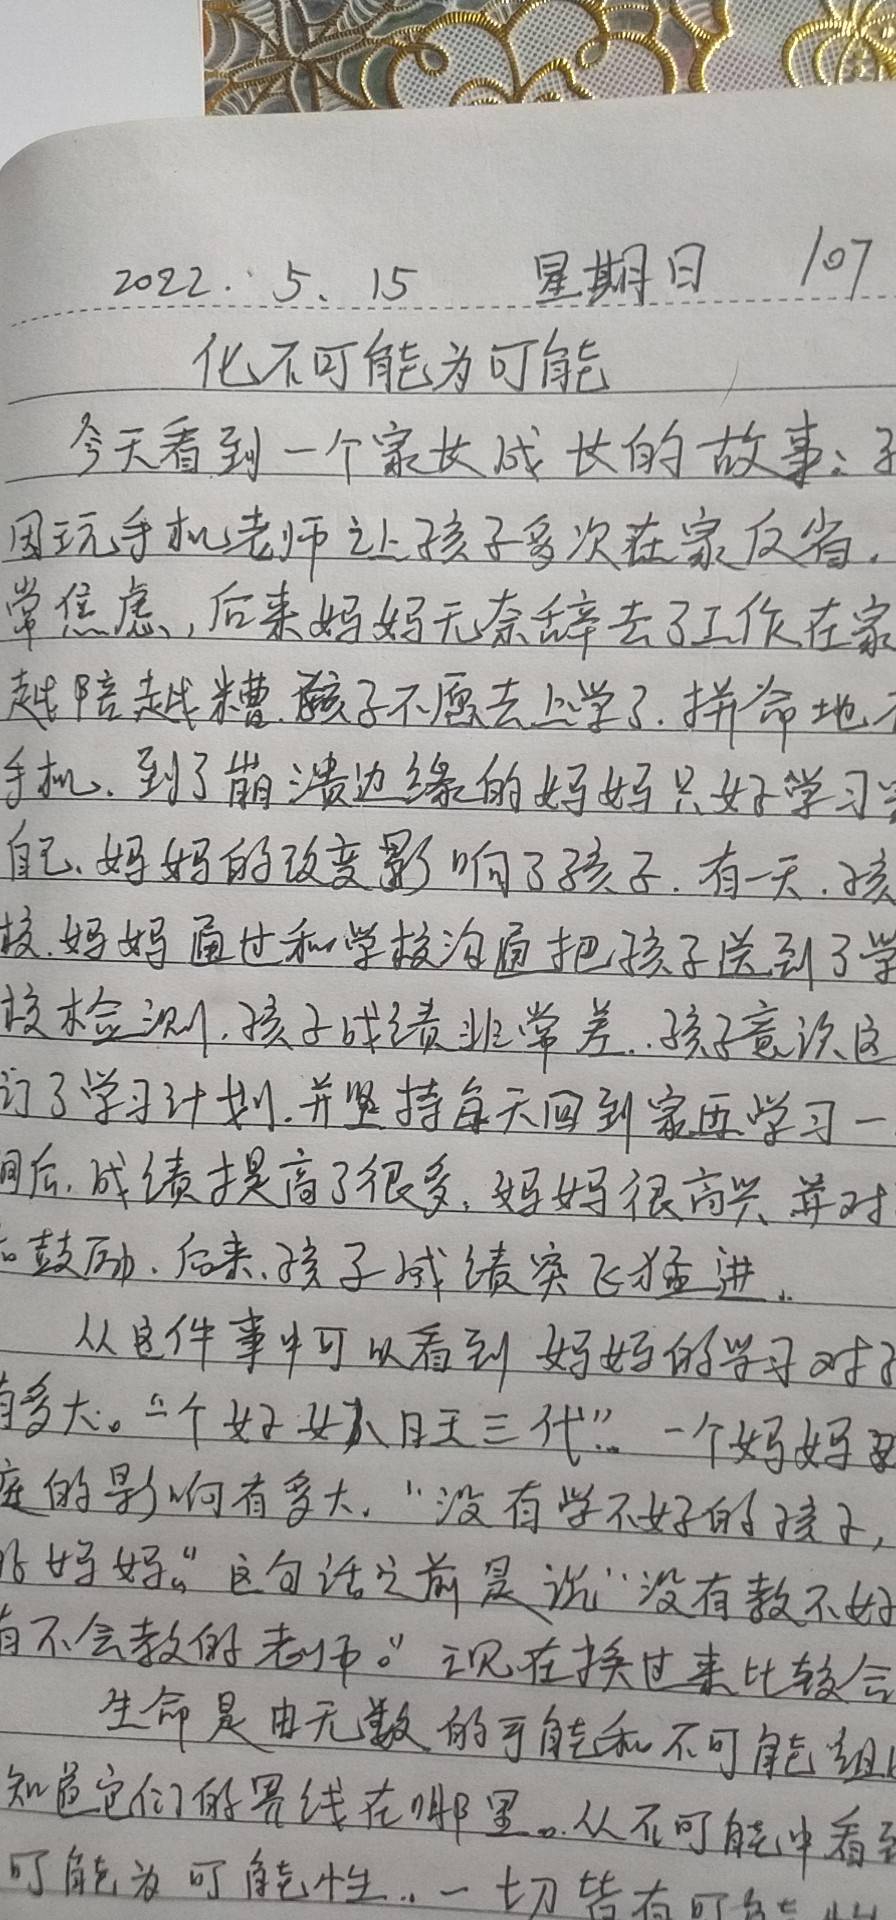 2022. 5. 15 星期日 107
化不可能为可能
今天看到一个家女成长的故事:孩
因玩手机老师让孩子多次在家反省.
常焦虑,后来妈妈无奈辞去了工作在家
越陪越糟.孩子不愿去上学了.拼命地
手机.到了崩溃边缘的妈妈只好学习
自己.妈妈的改变影响了孩子.有一天.孩
校.妈妈通过和学校沟通把孩子送到了学
校检测.孩子成绩非常差..孩子意识这
订了学习计划.并坚持每天回到家再学习一
间后.成绩提高了很多.妈妈很高兴并对
鼓励.后来.孩子成绩突飞猛进..
从这件事中可以看到妈妈的学习对孩
有多大。"一个好女人旺三代".一个妈妈
庭的影响有多大."没有学不好的孩子,
妈妈。"这句话之前是说"没有教不好
有不会教的老师。"现在换过来比较合
生命是由无数的可能和不可能组
知道它们的界线在哪里..从不可能中看到
可能为可能性..一切皆有可能